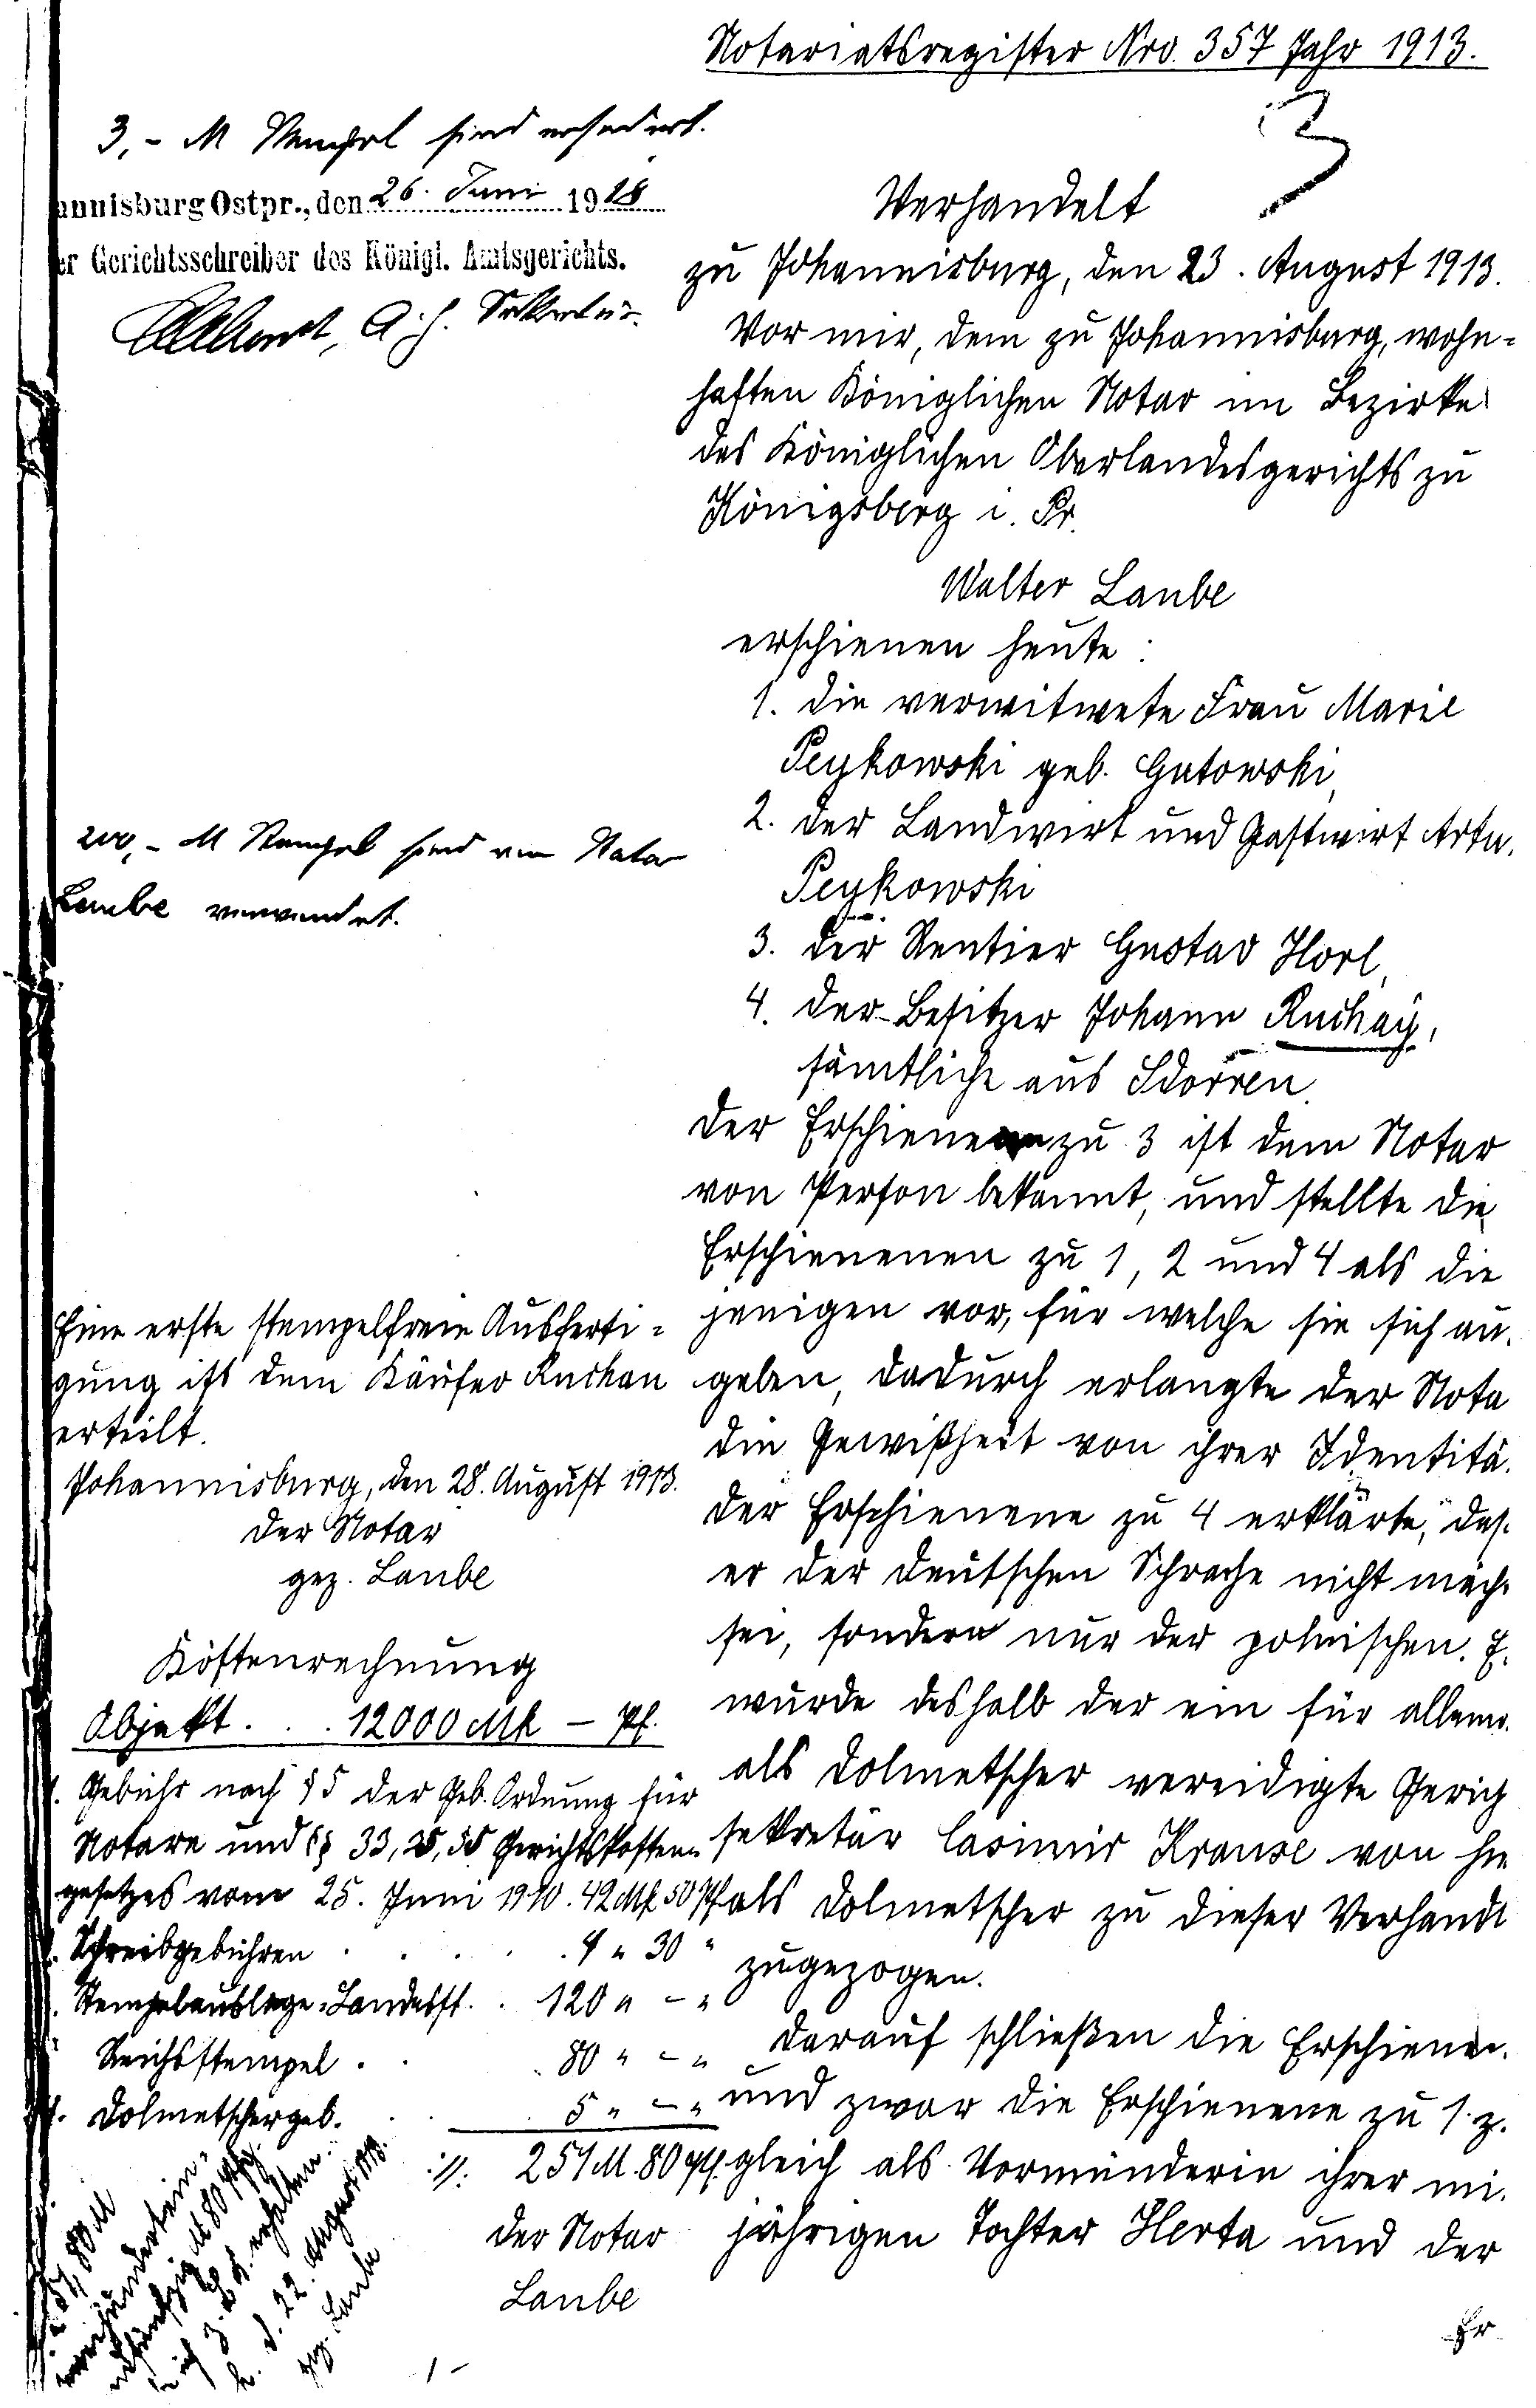 Notariatsregister Nro. 357 Jahr 1913.
3
3,- M Stempel sind erfordert.
annisburg Ostpr., den 26. Juni 1918
er Gerichtsschreiber des Königl. Amtsgerichts.
A.G. Sekretär.
Verhandelt
zu Johannisburg, den 23. August 1913.
Vor mir, dem zu Johannisburg, wohn-
haften Königlichen Notar im Bezirke
des Königlichen Oberlandesgerichts zu
Königsberg i. Pr.
Walter Laube
erschienen heute:
1. die verwitwete Frau Marie
Peykowski geb. Gutowski,
2. der Landwirt und Gastwirt Artu.
Peykowski
3. der Rentier Gustav Horl,
4. der Besitzer Johann Ruchay,
sämtliche aus Sdorren.
der Erschienene zu 3 ist dem Notar
von Person bekannt, und stellte die
Erschienenen zu 1, 2 und 4 als die
jenigen vor, für welche sie sich an.
geben, dadurch erlangte der Nota
die Gewißheit von ihrer Identitä.
der Erschienene zu 4 erklärte, das.
er der deutschen Sprache nicht mäch.
sei, sondern nur der polnischen. E.
wurde deshalb der ein für allema.
als Dolmetscher vereidigte Gerich
sekretär Casimir Krause von hie
als Dolmetscher zu dieser Verhandl
zugezogen.
Darauf schließen die Erschienen.
und zwar die Erschienene zu 1. z.
gleich als Vormünderin ihrer mi.
jährigen Tochter Herta und der
Er
200,- M Stempel sind vom Notar
Laube verwendet.
Eine erste stempelfreie Ausferti-
gung ist dem Käufer Ruchay
erteilt.
Johannisburg, den 28. August 1913.
Der Notar
gez. Laube
Kostenrechnung
Objekt . . . 12000 Mk – Pf.
1. Gebühr nach § 5 der Geb. Ordnung für
Notare und §§ 33, 25, 55 Gerichtskosten-
gesetzes vom 25. Juni 1910. 42 Mk 50 Pf
Schreibgebühren . . . . . 4 " 30 "
Stempelauslage: Landesst. . 120 " – "
Reichsstempel . . . 80 " – "
Dolmetschergeb. . . . 5 " – "
251 M. 80 Pf.
Der Notar
Laube
251,80 M
zweihundertein-
undfünfzig M 80 Pfg.
erhalten.
d. 22. August 1913.
gez. Laube